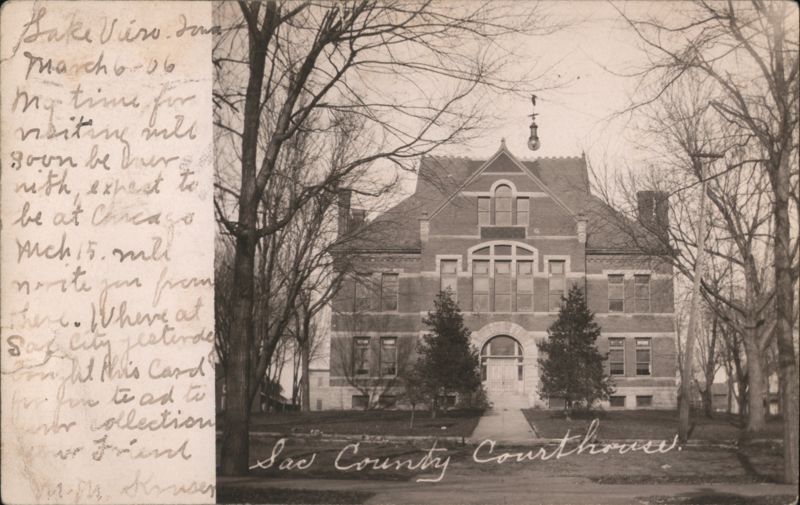 Lake View. Iowa
March 6-06
My time for
visiting will
soon be over
with, expect to
be at Chicago
Mch 15. will
write you from
here. Where at
Sac City yesterday
bought this Card
for you to ad to
your collection
your Friend
M. M.
Sac County Courthouse.